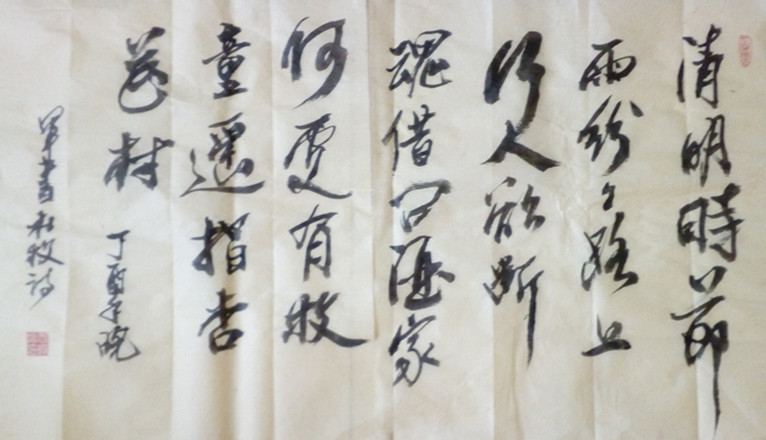 清明時節
雨紛々路上
行人欲断
魂借问酒家
何處有牧
童遥指杏
花村 丁酉年晚
軍書杜牧诗